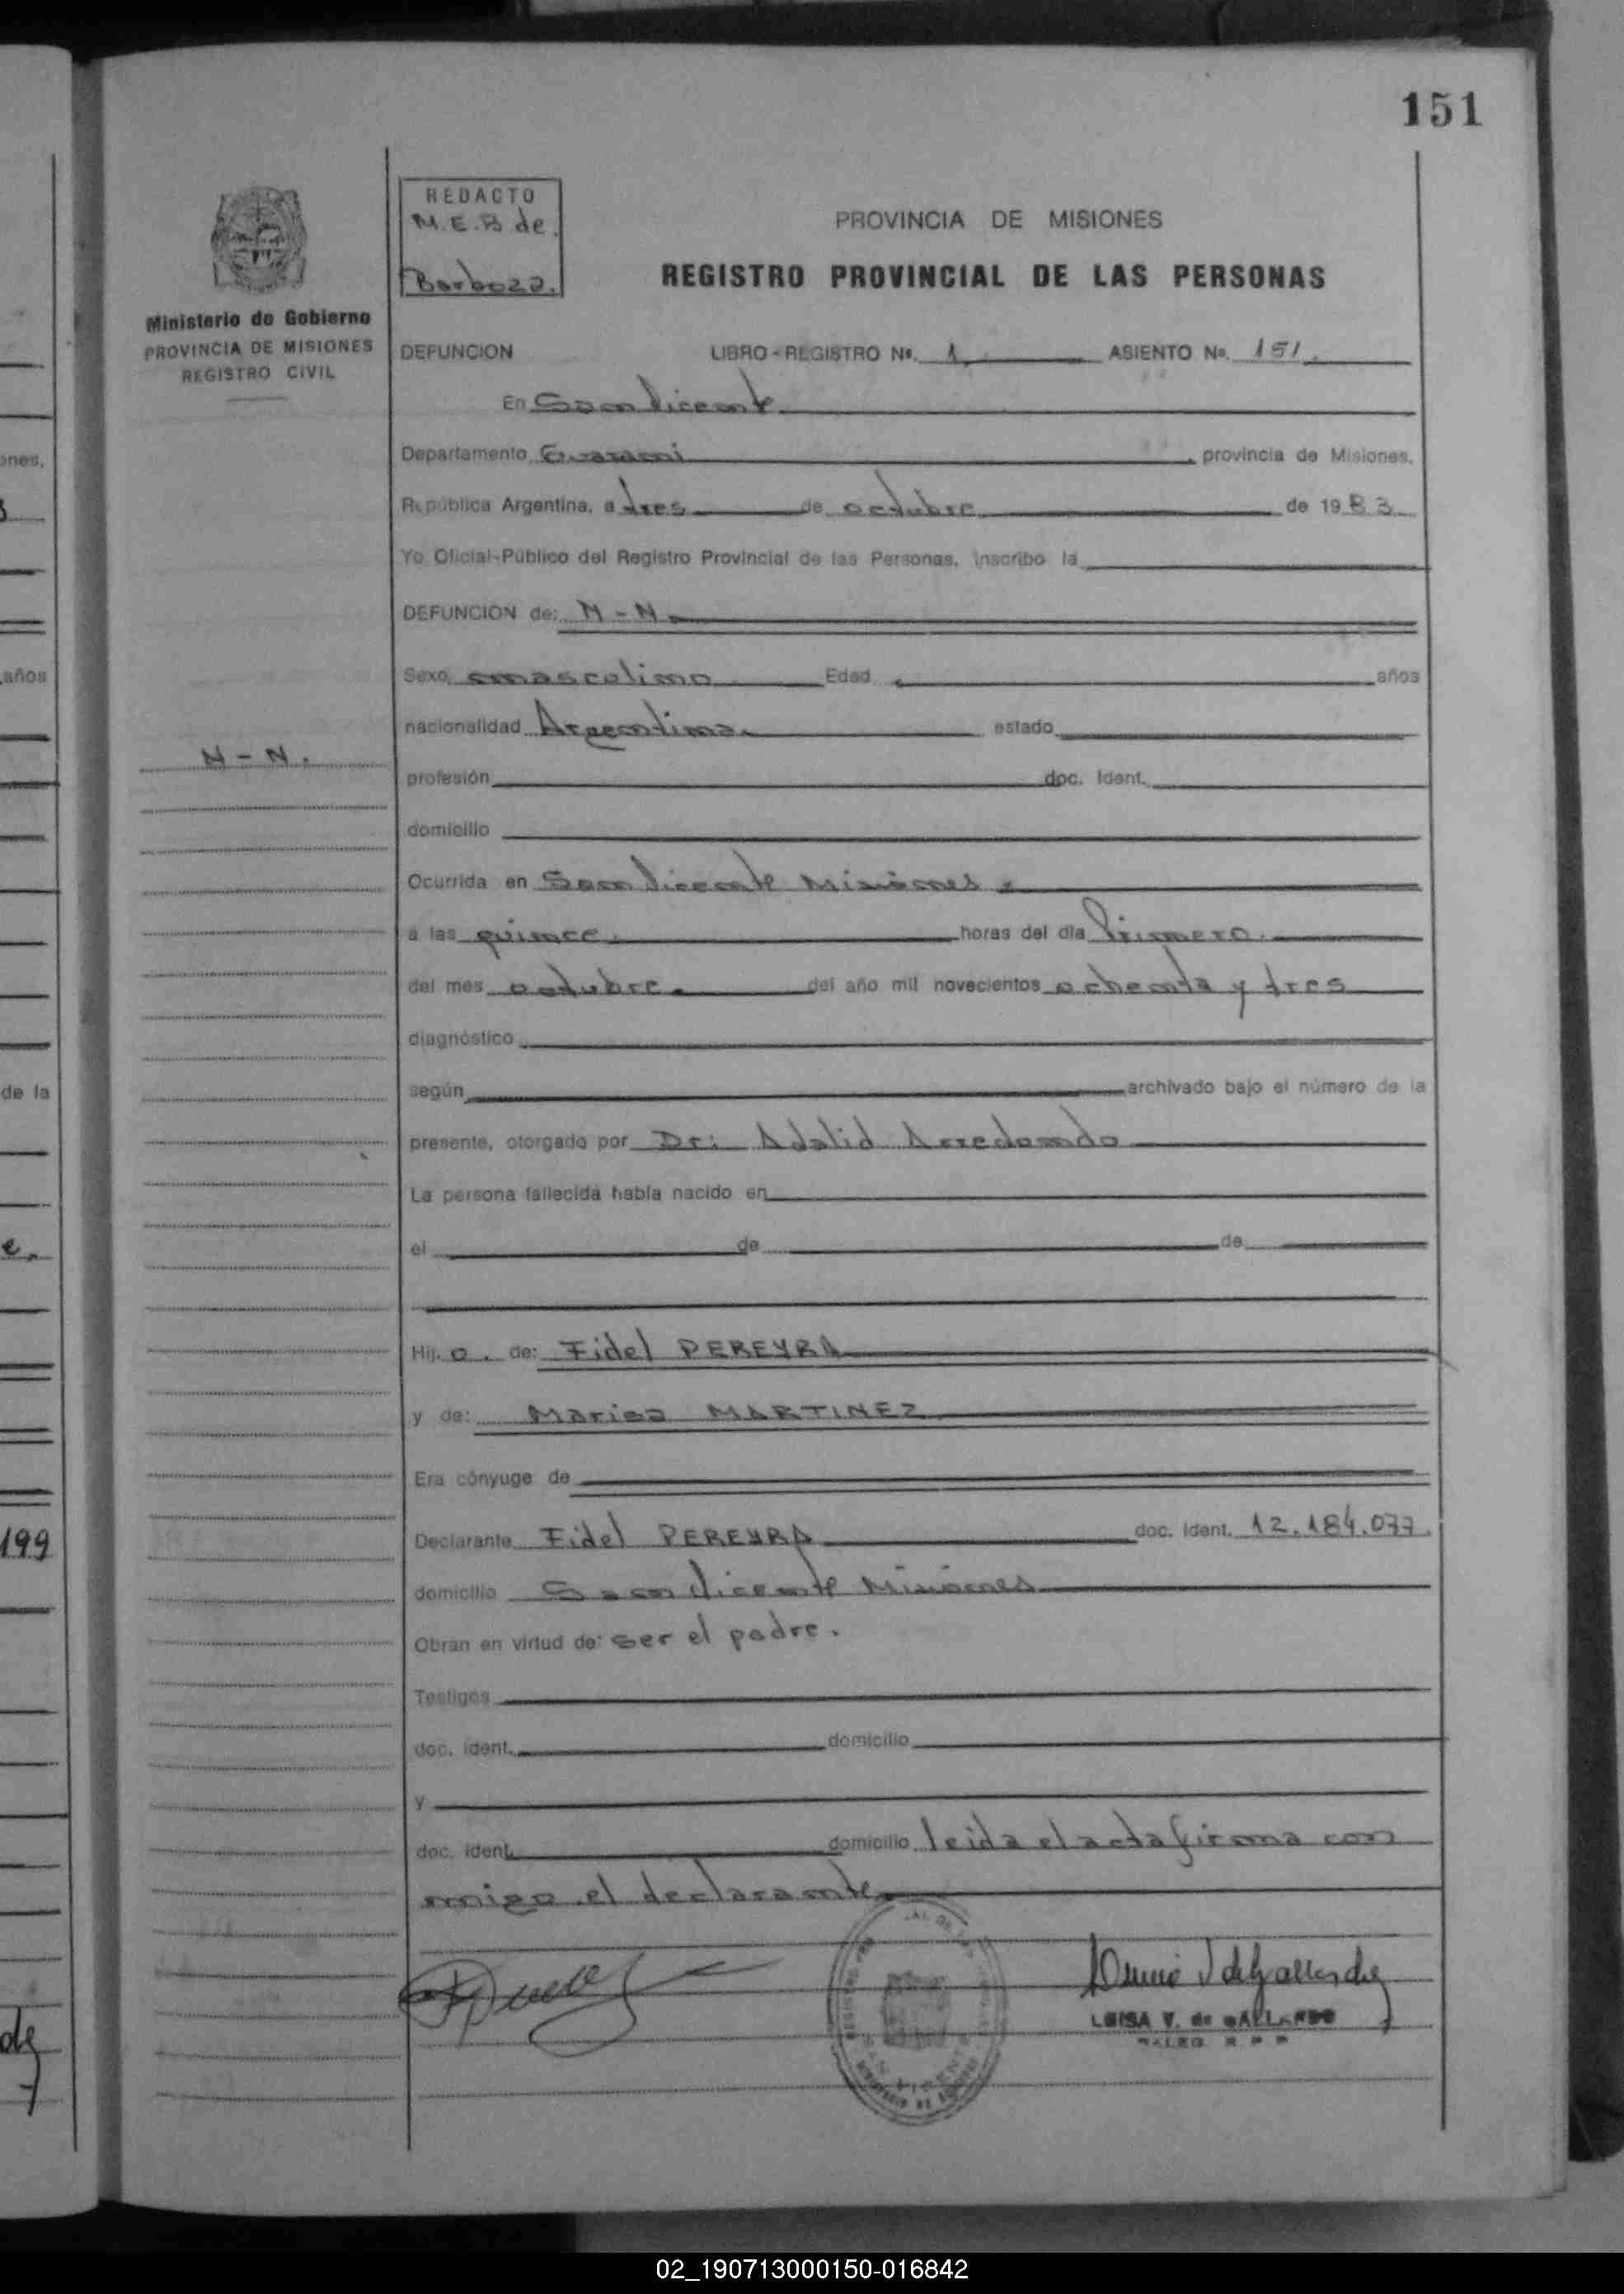 151
REDACTO
M.E.B de
Barboza.
PROVINCIA DE MISIONES
REGISTRO PROVINCIAL DE LAS PERSONAS
Ministerio de Gobierno
PROVINCIA DE MISIONES
REGISTRO CIVIL
DEFUNCION LIBRO-REGISTRO Nº. 1, ASIENTO Nº. 151.
En San Vicente
Departamento Guarani, provincia de Misiones,
República Argentina, a tres de octubre de 1983
Yo Oficial-Público del Registro Provincial de las Personas, inscribo la
DEFUNCION de: N-N
Sexo masculino Edad años
nacionalidad Argentina. estado
N-N.
profesión doc. Ident.
domicilio
Ocurrida en San Vicente Misiones
a las quince. horas del día Primero.
del mes octubre. del año mil novecientos ochenta y tres
diagnóstico
según archivado bajo el número de la
presente, otorgado por Dr: Adalid Arredondo
La persona fallecida había nacido en
el de de
Hij.o. de: Fidel PEREYRA
y de: Marisa MARTINEZ
Era cónyuge de
Declarante Fidel PEREYRA doc. Ident. 12.184.077.
domicilio San Vicente Misiones
Obran en virtud de: ser el padre.
Testigos
doc. ident. domicilio
y
doc. ident. domicilio leida el acta firma con
migo el declarante.
LUISA V. de GALLARDO
ones,
años
de la
e.
199
02_190713000150-016842